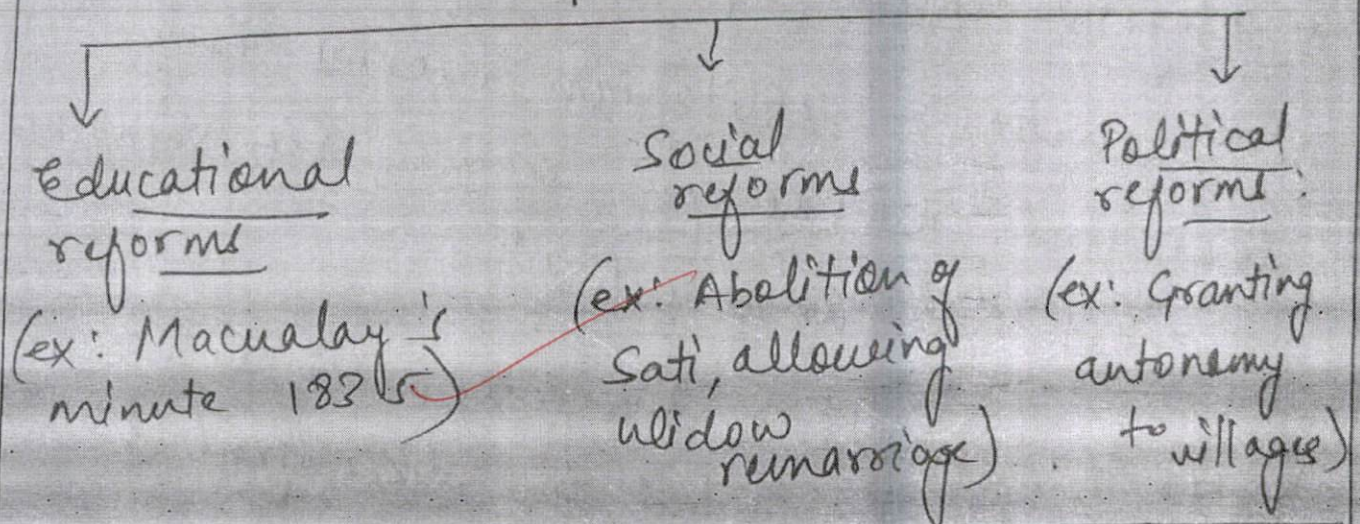 Educational
reforms
(ex: Macualay's
minute 1835)
Social
reforms
(ex: Abolition of
Sati, allowing
widow
remarriage)
Political
reforms:
(ex: Granting
autonomy
to villages)